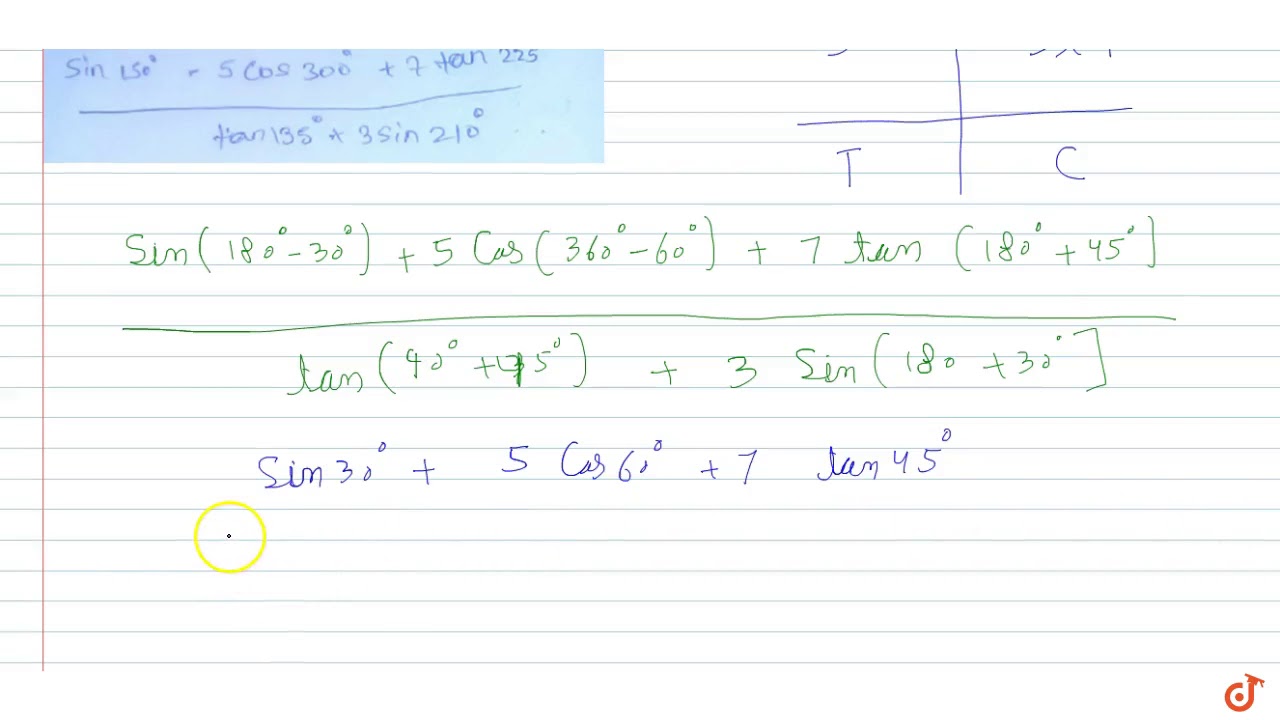 Sin 150° - 5 Cos 300° + 7 tan 225
tan 135° + 3 sin 210°
T C
Sin(180°-30°) + 5 Cos(360°-60°) + 7 tan (180°+45°]
tan(90°+45°) + 3 Sin(180+30°]
Sin30° + 5 Cos60° + 7 tan45°